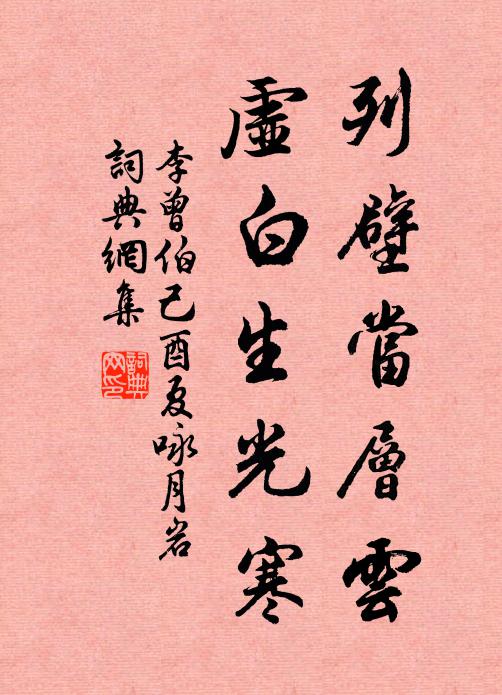 列壁當層雲
虛白生光寒
李曾伯己酉夏咏月岩
詞典網集
詞典網印